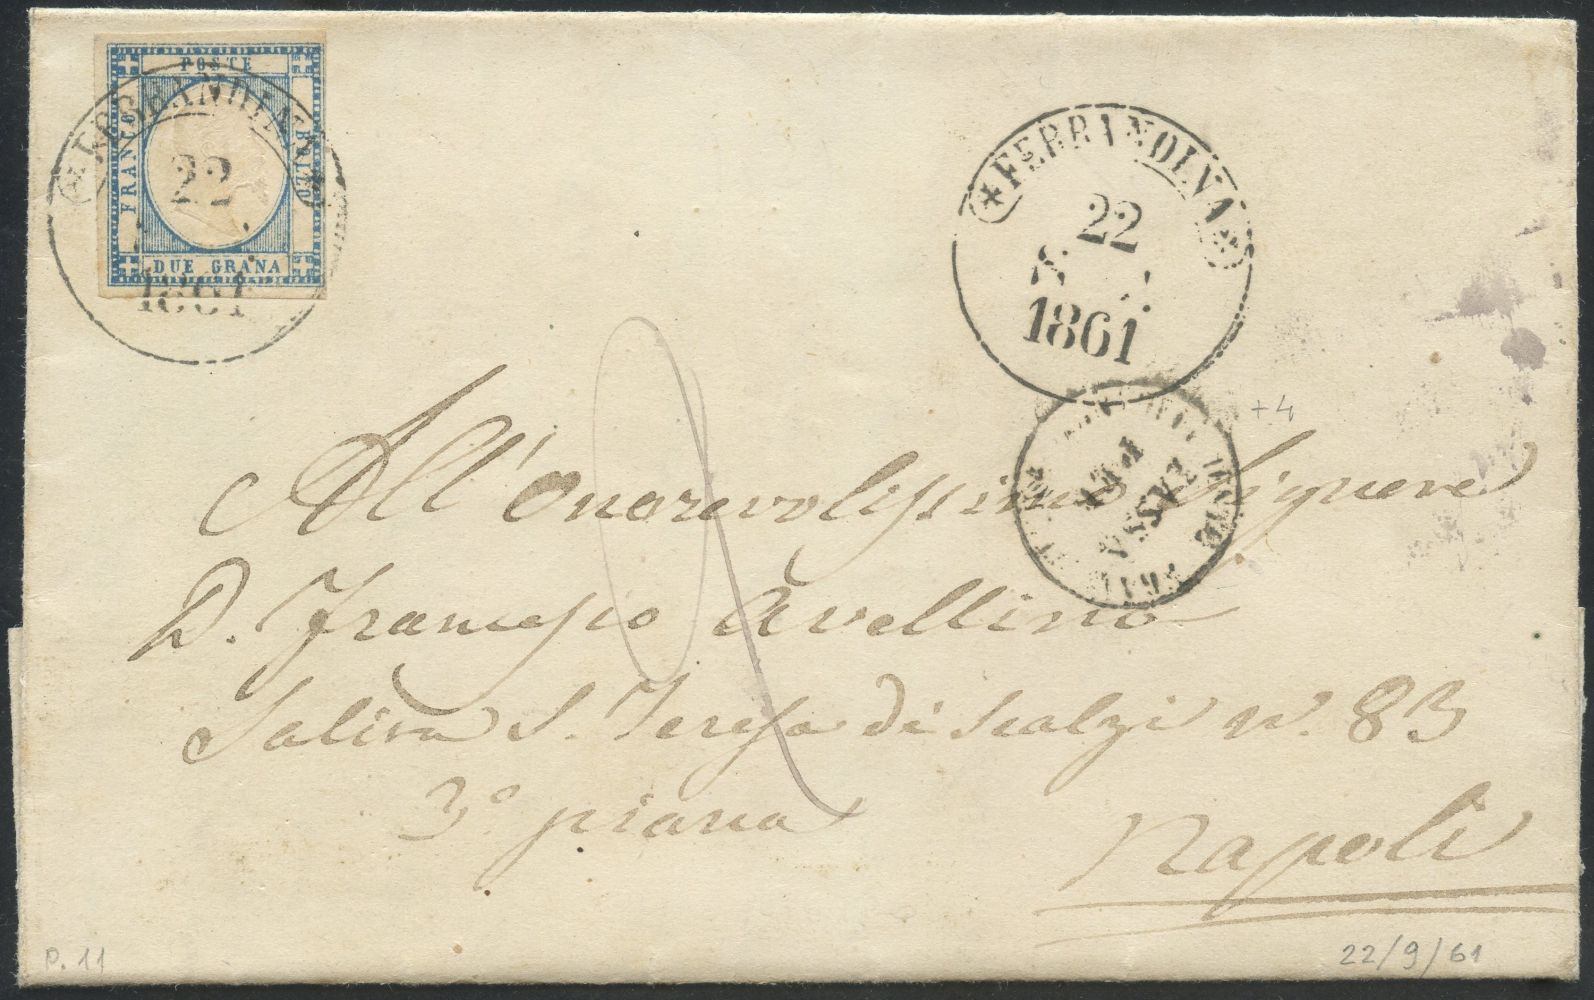 POSTE
FRANCO
BOLLO
DUE GRANA
22
1861
FERRANDINA
22
1861
+4
All'Onorevolissimo Signore
D. Francesco Avellino
Salita S. Teresa di Scalzi n. 83
3º piano
Napoli
P. 11
22/9/61